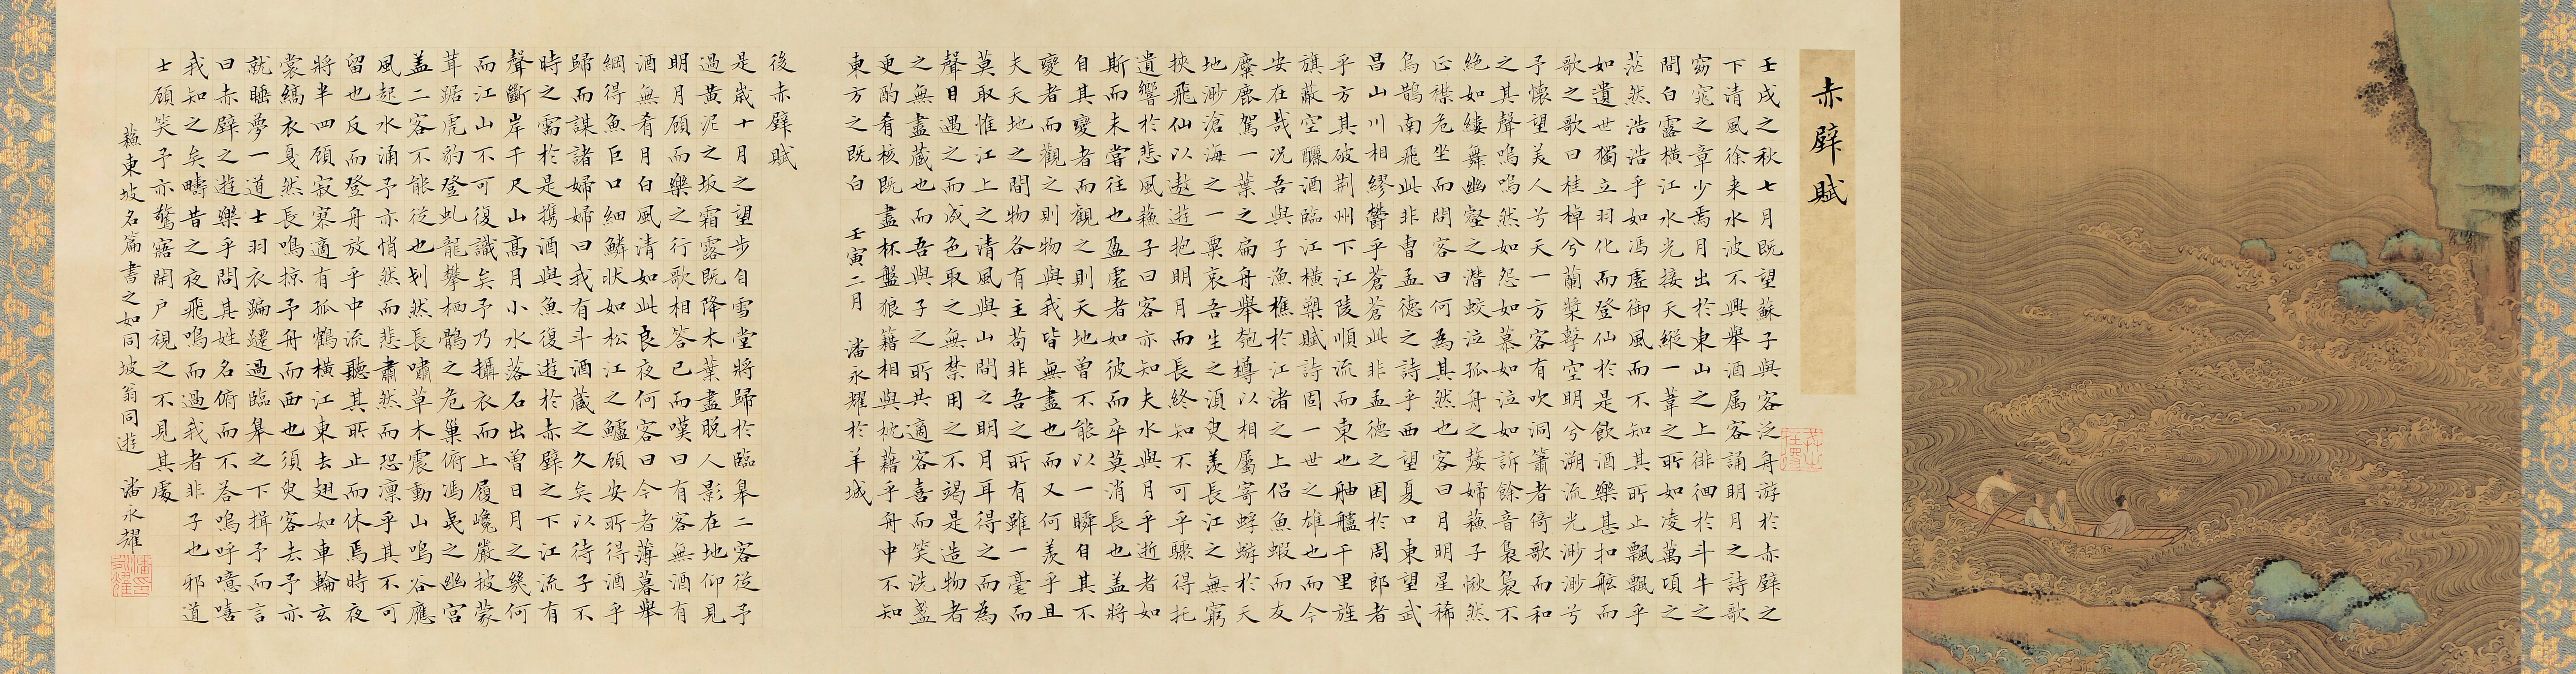 赤壁賦
壬戌之秋七月既望蘇子與客泛舟游於赤壁之
下清風徐来水波不興舉酒属客誦明月之詩歌
窈窕之章少焉月出於東山之上徘徊於斗牛之
間白露橫江水光接天縱一葦之所如凌萬頃之
茫然浩浩乎如馮虛御風而不知其所止飄飄乎
如遺世獨立羽化而登仙於是飲酒樂甚扣舷而
歌之歌曰桂棹兮蘭槳擊空明兮溯流光渺渺兮
予懷望美人兮天一方客有吹洞簫者倚歌而和
之其聲嗚嗚然如怨如慕如泣如訴餘音裊裊不
絶如縷舞幽壑之潛蛟泣孤舟之嫠婦蘇子愀然
正襟危坐而問客曰何為其然也客曰月明星稀
烏鵲南飛此非曹孟德之詩乎西望夏口東望武
昌山川相繆鬱乎蒼蒼此非孟德之困於周郎者
乎方其破荆州下江陵順流而東也舳艫千里旌
旗蔽空釃酒臨江橫槊賦詩固一世之雄也而今
安在哉况吾與子漁樵於江渚之上侶魚蝦而友
麋鹿駕一葉之扁舟舉匏樽以相屬寄蜉蝣於天
地渺滄海之一粟哀吾生之須臾羨長江之無窮
挾飛仙以遨遊抱明月而長終知不可乎驟得托
遺響於悲風蘇子曰客亦知夫水與月乎逝者如
斯而未嘗往也盈虛者如彼而卒莫消長也蓋將
自其變者而觀之則天地曾不能以一瞬自其不
變者而觀之則物與我皆無盡也而又何羨乎且
夫天地之間物各有主苟非吾之所有雖一毫而
莫取惟江上之清風與山間之明月耳得之而為
聲目遇之而成色取之無禁用之不竭是造物者
之無盡藏也而吾與子之所共適客喜而笑洗盞
更酌肴核既盡杯盤狼籍相與枕藉乎舟中不知
東方之既白 壬寅二月 潘永耀於羊城
後赤壁賦
是歲十月之望步自雪堂將歸於臨皋二客從予
過黃泥之坂霜露既降木葉盡脫人影在地仰見
明月顧而樂之行歌相答已而嘆曰有客無酒有
酒無肴月白風清如此良夜何客曰今者薄暮舉
網得魚巨口細鱗狀如松江之鱸顧安所得酒乎
歸而謀諸婦婦曰我有斗酒藏之久矣以待子不
時之需於是攜酒與魚復遊於赤壁之下江流有
聲斷岸千尺山高月小水落石出曾日月之幾何
而江山不可復識矣予乃攝衣而上履巉巖披蒙
茸踞虎豹登虬龍攀栖鶻之危巢俯馮夷之幽宮
蓋二客不能從也划然長嘯草木震動山鳴谷應
風起水涌予亦悄然而悲肅然而恐凛乎其不可
留也反而登舟放乎中流聽其所止而休焉時夜
將半四顧寂寥適有孤鶴橫江東去翅如車輪玄
裳縞衣戛然長鳴掠予舟而西也須臾客去予亦
就睡夢一道士羽衣蹁躚過臨皋之下揖予而言
曰赤壁之遊樂乎問其姓名俯而不答嗚呼噫嘻
我知之矣疇昔之夜飛鳴而過我者非子也邪道
士顧笑予亦驚寤開户視之不見其處
蘇東坡名篇書之如同坡翁同遊 潘永耀